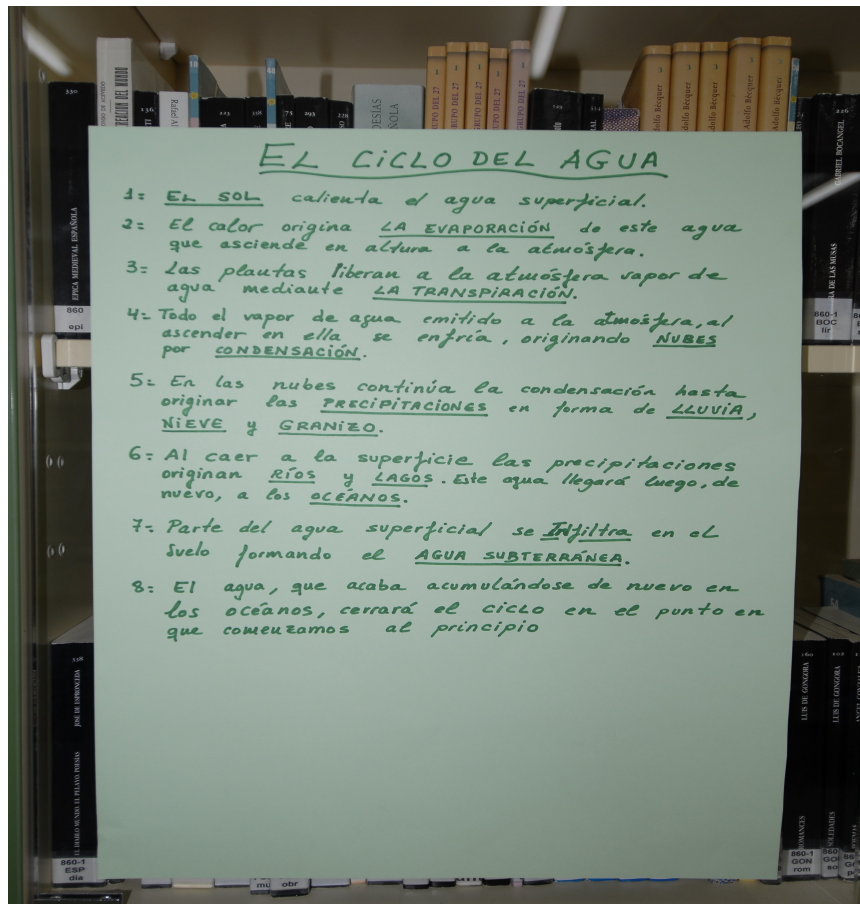 EL CICLO DEL AGUA
1= EL SOL calienta el agua superficial.
2= El calor origina LA EVAPORACIÓN de este agua
que asciende en altura a la atmósfera.
3= Las plantas liberan a la atmósfera vapor de
agua mediante LA TRANSPIRACIÓN.
4= Todo el vapor de agua emitido a la atmósfera, al
ascender en ella se enfría, originando NUBES
por CONDENSACIÓN.
5= En las nubes continúa la condensación hasta
originar las PRECIPITACIONES en forma de LLUVIA,
NIEVE y GRANIZO.
6= Al caer a la superficie las precipitaciones
originan RÍOS y LAGOS. Este agua llegará luego, de
nuevo, a los OCÉANOS.
7= Parte del agua superficial se Infiltra en el
suelo formando el AGUA SUBTERRÁNEA.
8= El agua, que acaba acumulándose de nuevo en
los océanos, cerrará el ciclo en el punto en
que comenzamos al principio
330
EPICA MEDIEVAL ESPAÑOLA
860
epi
136
GRUPO DEL 27
GRUPO DEL 27
GRUPO DEL 27
Adolfo Bécquer
Adolfo Bécquer
Adolfo Bécquer
Adolfo Bécquer
Adolfo Bécquer
226
GABRIEL BOCANGEL
LAS MUSAS
860-1
BOC
lir
338
JOSE DE ESPRONCEDA
EL DIABLO MUNDO. EL PELAYO. POESIAS
860-1
ESP
dia
mu
obr
160
LUIS DE GONGORA
ROMANCES
860-1
GON
rom
202
LUIS DE GONGORA
SOLEDADES